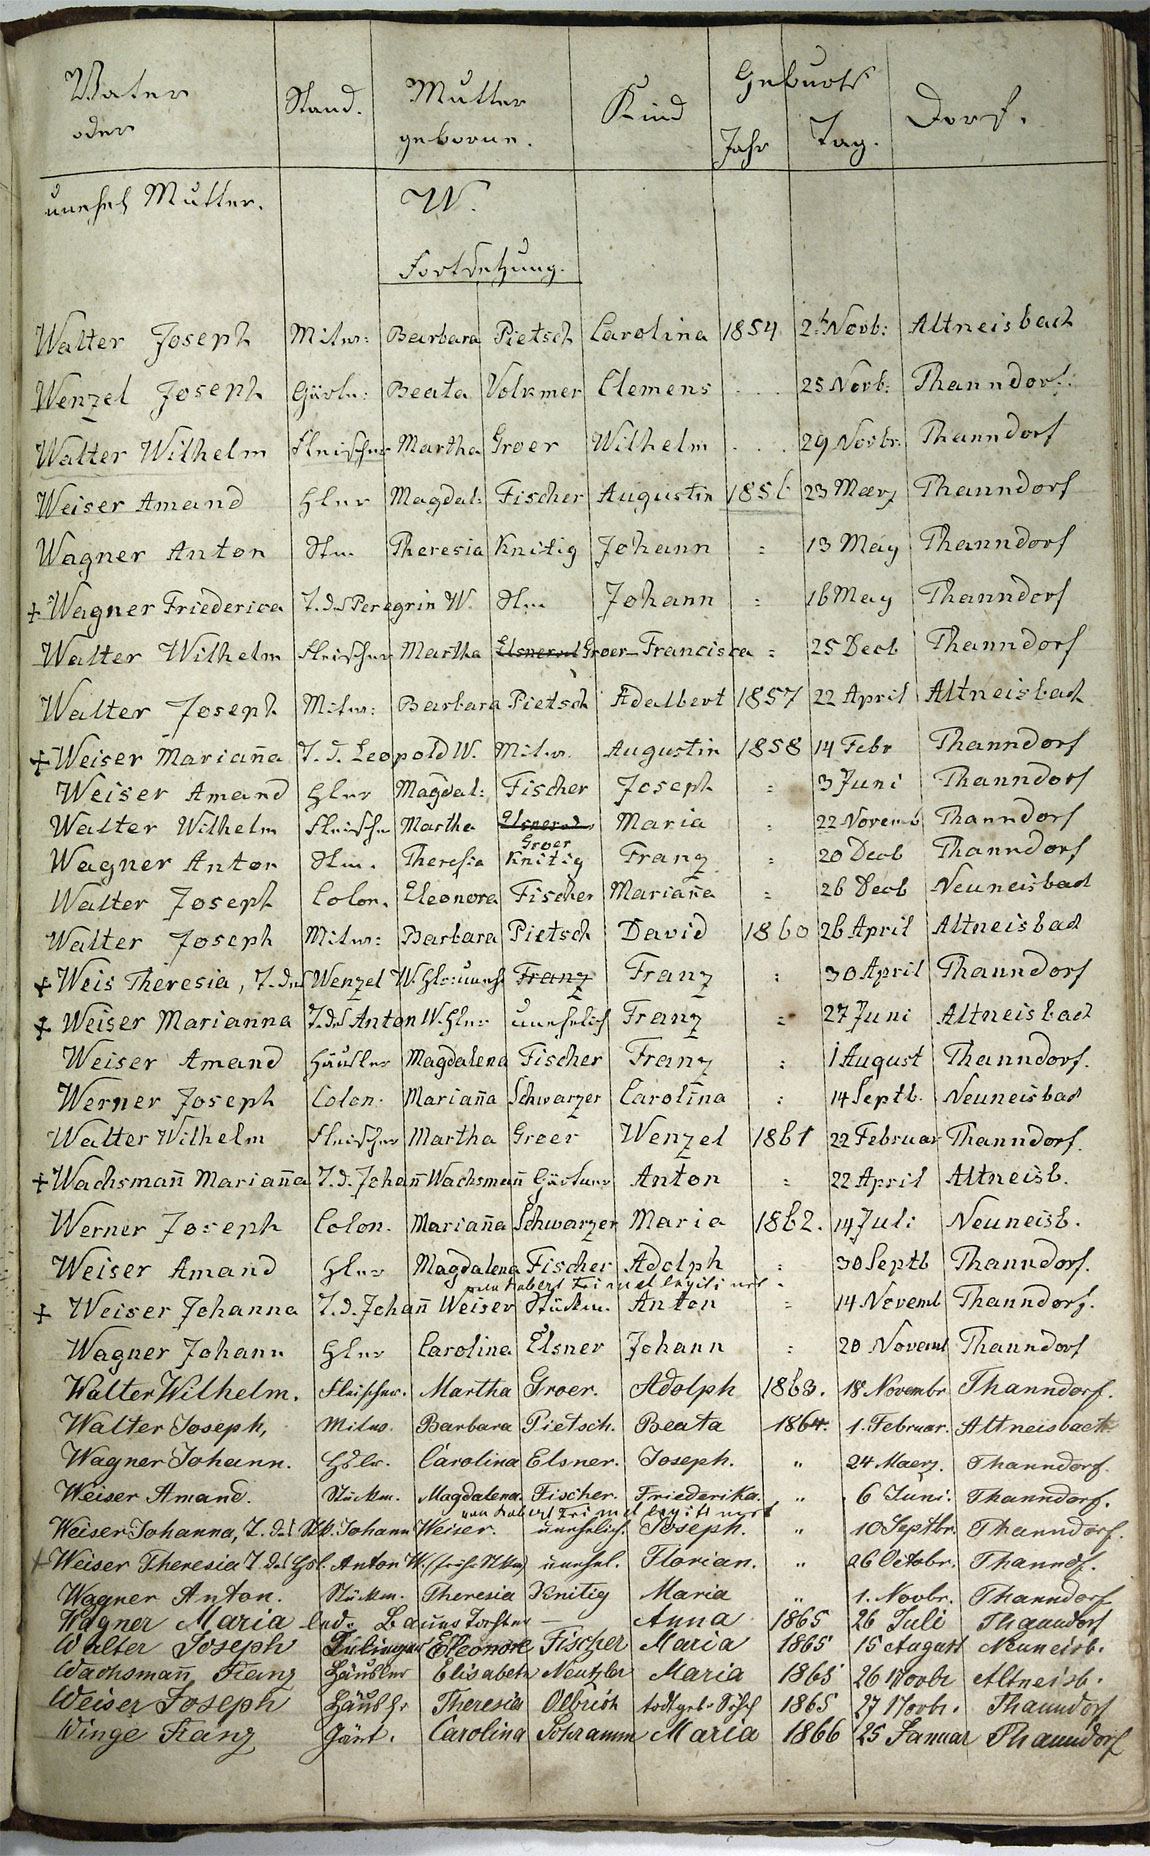 Vater Stand. Mutter Kind Geburts Dorf.
oder geborne. Jahr Tag.
unehel Mutter. W.
Fortsetzung.
Walter Joseph Milw: Barbara Pietsch Carolina 1854. Novb: Altneisbach
Wenzel Joseph Gärtn: Beata Volkmer Clemens . . . 25 Novb: Thanndorf.
Walter Wilhelm Fleischer Martha Groer Wilhelm . . . 29 Novbr. Thanndorf
Weiser Amand Hler Magdal: Fischer Augustin 1856 23 Maerz Thanndorf
Wagner Anton Stm. Theresia Knitig Johann = 13 May Thanndorf
+ Wagner Friederica T. des Peregrin W. Stm Johann = 16 May Thanndorf
Walter Wilhelm Fleischer Martha Groer Francisca = 25 Decb Thanndorf
Walter Joseph Milw: Barbara Pietsch Adalbert 1857 22 April Altneisbach
+ Weiser Mariañа T. d. Leopold W. Milw. Augustin 1858 14 Febr Thanndorf
Weiser Amand Hler Magdal: Fischer Joseph = 3 Juni Thanndorf
Walter Wilhelm Fleischer Martha Elsnerod Maria = 22 Novemb Thanndorf
Groer
Wagner Anton Stm. Theresia Knitig Franz = 20 Decb Thanndorf
Walter Joseph Colon. Eleonora Fischer Mariaña = 26 Decb Neuneisbach
Walter Joseph Milw: Barbara Pietsch David 1860 26 April Altneisbach
+ Weis Theresia, T. des Wenzel W. Hler: uneh Franz Franz = 30 April Thanndorf
+ Weiser Marianna T. des Anton W. Hler unehelich Franz = 27 Juni Altneisbach
Weiser Amand Häusler Magdalena Fischer Franz = 1 August Thanndorf.
Werner Joseph Colon. Mariaña Schwarzer Carolina = 14 Septb. Neuneisbach
Walter Wilhelm Fleischer Martha Groer Wenzel 1861 22 Februar Thanndorf.
+ Wachsmañ Mariaña T. d. Johañ Wachsmañ Gärtner Anton = 22 April Altneisb.
Werner Joseph Colon. Mariaña Schwarzer Maria 1862. 14 Juli Neuneisb.
Weiser Amand Hler Magdalena Fischer Adolph = 30 Septb Thanndorf.
von Robert Frimel legitimirt
+ Weiser Johanna T. d. Johañ Weiser Stückm. Anton = 14 Novemb Thanndorf.
Wagner Johann Hler Carolina Elsner Johann = 20 Novemb Thanndorf
Walter Wilhelm. Fleischer. Martha Groer. Adolph 1863. 18. Novembr Thanndorf.
Walter Joseph, Milw. Barbara Pietsch. Beata 1864. 1. Februar. Altneisbach
Wagner Johann. Hslr. Carolina Elsner. Joseph. " 24 Maerz. Thanndorf.
Weiser Amand. Stückm. Magdalena Fischer. Friederika. " 6 Juni. Thanndorf.
von Robert Frimel legitimirt
Weiser Johanna, T. des Stk. Johann Weiser. unehelich. Joseph. " 10 Septbr. Thanndorf.
+ Weiser Theresia T. des Hsl. Anton W. (früh. Stkm) unehel. Florian. " 26 Octobr. Thanndf.
Wagner Anton. Stückm. Theresia Knitig Maria " 1. Novbr. Thanndorf
Wagner Maria led. Bauers Tochter — Anna 1865 26 Juli Thanndorf
Walter Joseph Eleonore Fischer Maria 1865 15 August Neuneisb.
Wachsmañ Franz Häusler Elisabeth Neutzler Maria 1865 26 Novbr Altneisb.
Weiser Joseph Häuslr Theresia Olbrich todtgeb. 1865 27 Novbr. Thanndorf
Winge Franz Gärt. Carolina Schramm Maria 1866 25 Januar Thanndorf